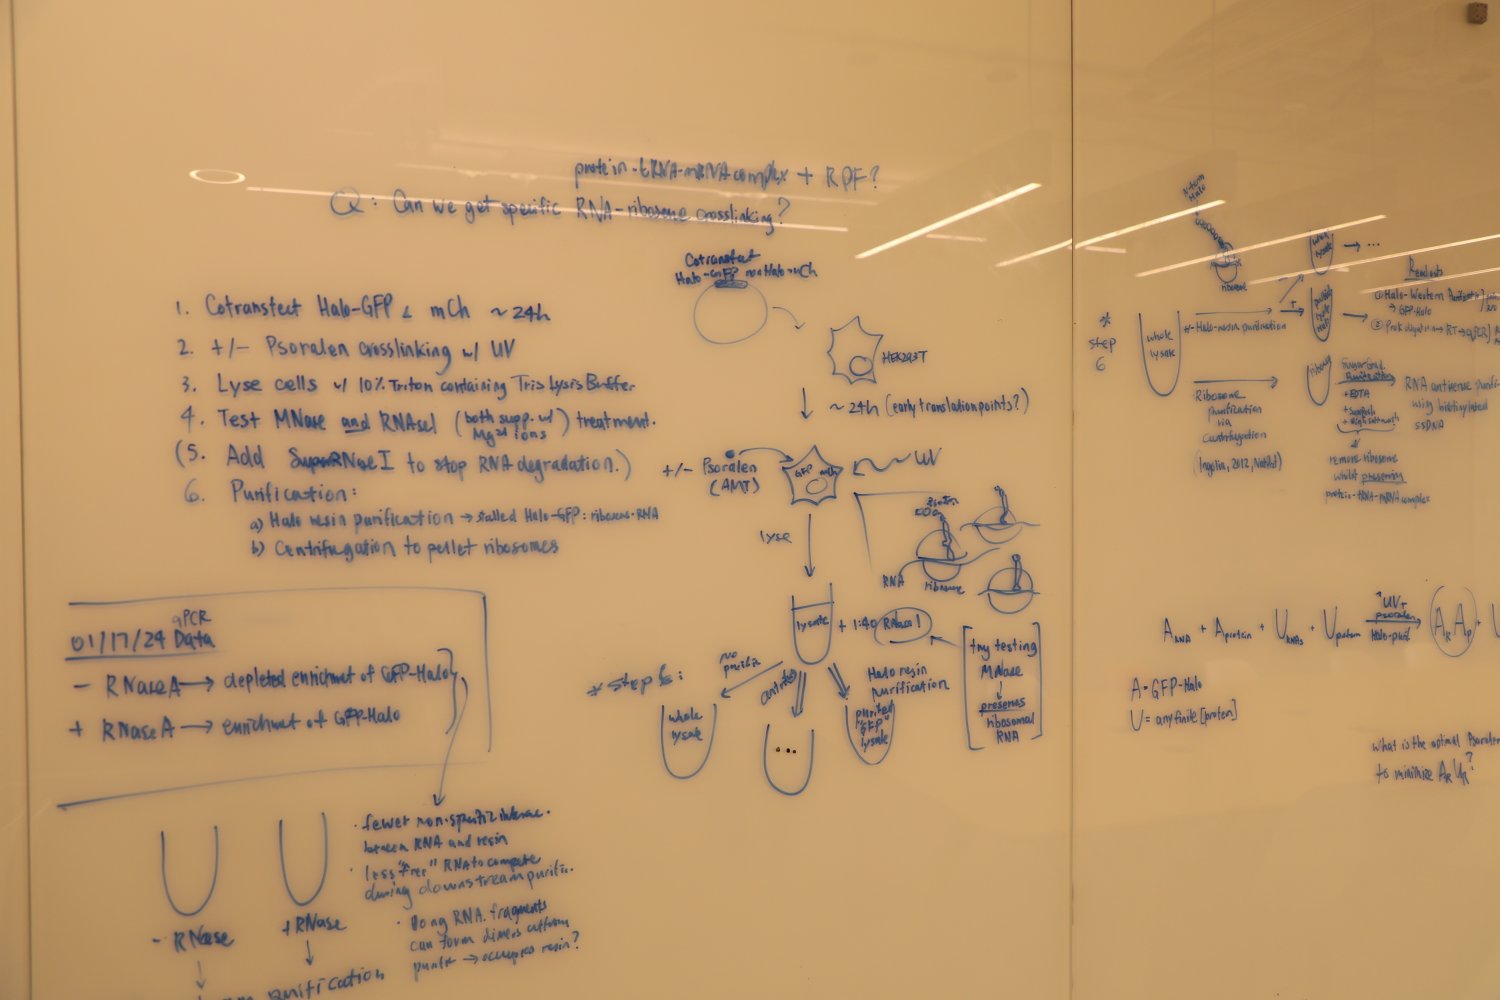 protein-tRNA-mRNA complex + RPF?
Q: Can we get specific RNA-ribosome crosslinking?
1. Cotranstect Halo-GFP & mCh ~24h
2. +/- Psoralen crosslinking w/ UV
3. Lyse cells w/ 10% Triton containing Tris Lysis Buffer
4. Test MNase and RNaseI (both supp. w/ Mg2+ ions) treatment.
(5. Add SupeRNaseI to stop RNA degradation.)
6. Purification:
a) Halo resin purification → stalled Halo-GFP: ribosome-RNA
b) Centrifugation to pellet ribosomes
qPCR
01/17/24 Data
- RNaseA → depleted enrichment of GFP-Halo
+ RNaseA → enrichment of GFP-Halo
· fewer non-specific
between RNA and resin
· less "free" RNA to compete
during downstream purific.
· long RNA fragments
can form dimers
→ occupies resin?
- RNase
+RNase
purification
Cotransfect
Halo-GFP non Halo-mCh
HEK293T
~24h (early translation points?)
+/- Psoralen
(AMT)
GFP mCh
UV
lyse
RNA
ribosome
lysate
+ 1:40 RNase I
try testing
MNase
↓
preserves
ribosomal
RNA
* Step 6:
no
Halo resin
purification
whole
lysate
...
purified
"GFP"
lysate
N-term
Halo
ribosome
whole
lysate
→ ...
*
step
6
whole
lysate
+/- Halo-resin purification
+
Readouts
① Halo-Western
→ GFP-Halo
② Prok digestion → RT → qPCR
Ribosome
purification
via
Centrifugation
(Ingolia, 2012, NatProt)
+EDTA
remove ribosome
whilst preserving
protein-tRNA-mRNA complex
RNA antisense purifi
using biotinylated
ssDNA
A RNA + A protein + U RNAs + U protein
UV+
psoralen
Halo-purif.
(A R A P) + U
A = GFP-Halo
U = any finite [protein]
What is the optimal Psoralen
to minimize A R U R?